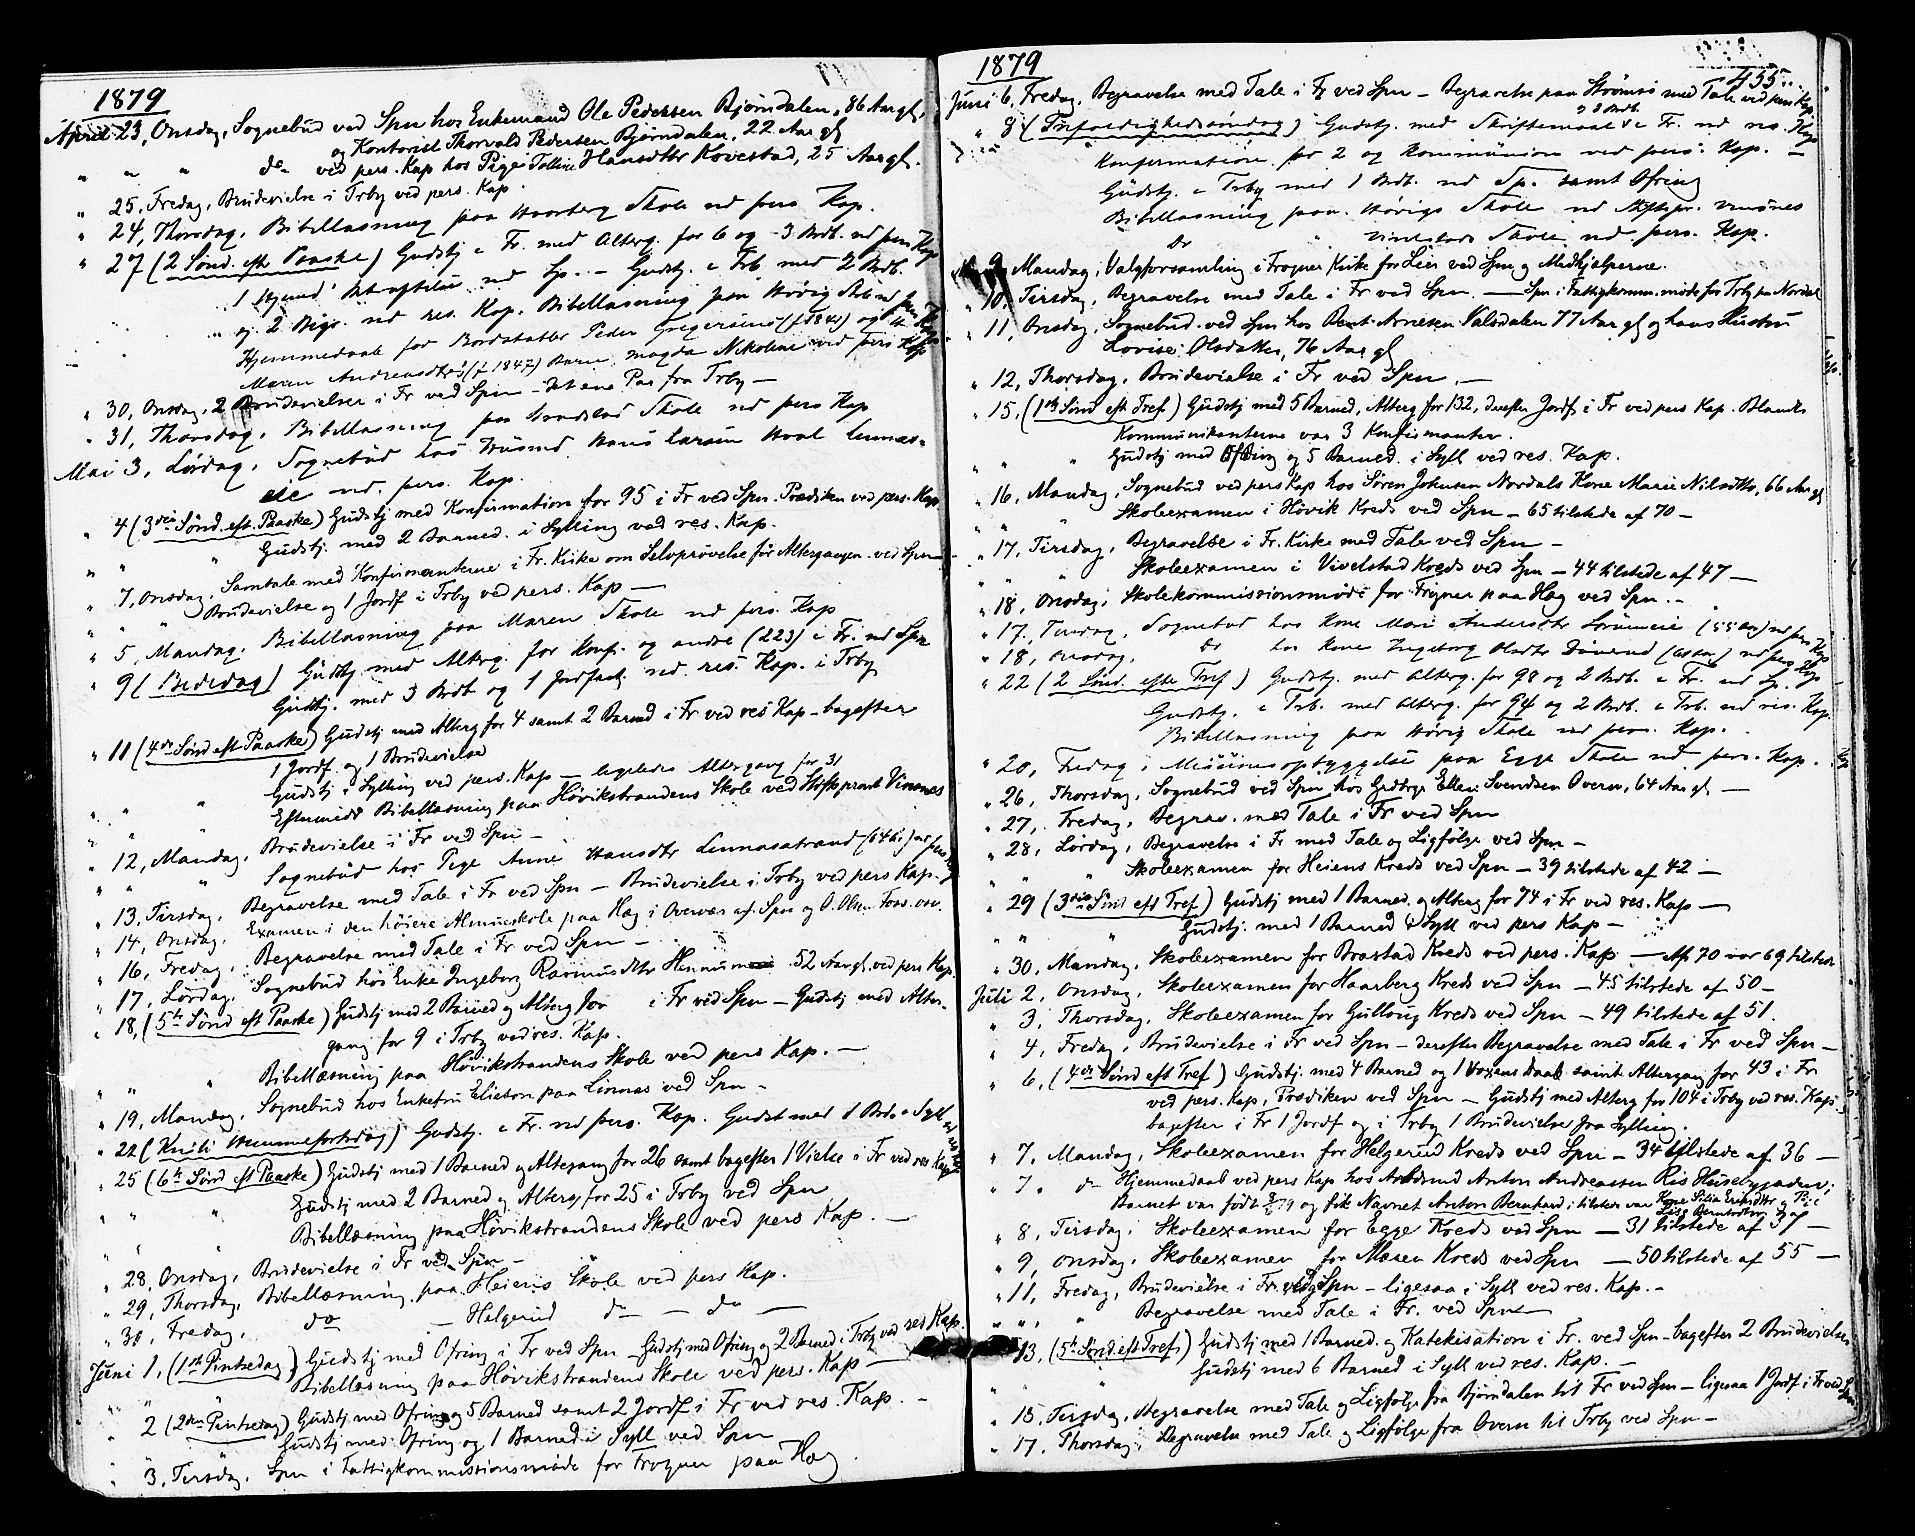 1879
April 23, Onsdag, Sognebud ved Spn hos Enkemand Ole Pedersen Bjørndalen, 86 Aar gl,
og Kontorist Thorvald Pedersen Bjørndalen, 22 Aar gl
" " " do ved pers. Kap hos Pige Tolline Hansdttr Kovestad, 25 Aar gl.
" 25, Fredag, Brudevielse i Trby ved pers. Kap.
" 24, Thorsdag, Bibellæsning paa Skole ved pers Kap.
" 27 (2 Sønd. eft Paaske) Gudstj i Fr. med Alterg. for 6 og 3 Brdb. ved pers Kap
ved Sp. - Gudstj. i Trb med 2 Brdb.
og 2 Begr. ved res. Kap. Bibellæsning paa Høvig Sk. ved pers Kap
Hjemmedaab for Bordstabler Peder Gregersens (f 1842) og
Maren Andreasdtrs (f 1847) Barn Magda Nikoline ved pers Kap
" 30, Onsdag, 2 Brudevielser i Fr ved Spn - det ene Par fra Trby -
" 31, Thorsdag, Bibellæsning paa Skole ved pers Kap
Mai 3, Lørdag, Sognebud hos Husmd Hans Larsen Hval Linnes-
eie ved. pers. Kap.
" 4 (3die Sønd. eft. Paaske) Gudstj med Konfirmation for 95 i Fr ved Spn. Prædiken ved pers. Kap
" " " Gudstj. med 2 Barned. i Sylling ved res. Kap.
" 7, Onsdag, Samtale med Konfirmanterne i Fr. Kirke om Selvprøvelse før Altergangen ved Spn
" " " Brudevielse og 1 Jordf i Trby ved pers. Kap -
" 5, Mandag, Bibellæsning paa Maren Skole ved pers Kap
" 9 (Bededag) Gudstj. med Alterg. for Konf. og andre (223) i Fr. ved Spn
Gudstj. med 3 Brdb og 1 Jordfæst. ved res. Kap. i Trby
" 11 (4de Sønd eft Paaske) Gudstj med Alterg for 4 samt 2 Barned i Fr ved res Kap - bagefter
1 Jordf. og 1 Brudevielse
" " Gudstj i Sylling ved pers. Kap - ligeledes Altergang for 31
" " Eftermidd Bibellæsning paa Høvikstrandens Skole ved Stiftsprovst Vinsnes
" 12, Mandag, Brudevielse i Fr ved Spn -
" " " Sognebud hos Pige Anne Hansdtr Linnesstrand (64 ) ved pers Kap
" 13, Tirsdag, Begravelse med Tale i Fr ved Spn - Brudevielse i Trby ved pers Kap.
" 14, Onsdag, Examen i den høiere Almueskole paa Hæg i Overvær af Spn og O. Olsen Foss. osv.
" 16, Fredag, Begravelse med Tale i Fr ved Spn -
" 17, Lørdag, Sognebud hos Enke Ingeborg Rasmusdttr Hennum 52 Aar gl. ved pers Kap.
" 18, (5te Sønd eft Paaske) Gudstj med 2 Barned og Alterg for i Fr ved Spn - Gudstj med Alter-
gang for 9 i Trby ved res. Kap.
" " " Bibellæsning paa Høvikstrandens Skole ved pers Kap. -
" 19, Mandag, Sognebud hos Enkefru Elieson paa Linnes ved Spn -
" 22 (Kristi Himmelfartsdag) Gudstj. i Fr. ved pers. Kap. Gudst med 1 Brdb i Syll ved res Kap
" 25 (6te Sønd eft Paaske) Gudstj med 1 Barned og Altergang for 26 samt bagefter 1 Vielse i Fr ved res Kap
" " Gudstj med 2 Barned og Alterg. for 25 i Trby ved Spn
" " " Bibellæsning paa Høvikstrandens Skole ved pers Kap. -
" 28, Onsdag, Brudevielse i Fr ved Spn -
" 29, Thorsdag, Bibellæsning paa Heiens Skole ved pers Kap.
" 30, Fredag, do - Helgerud do - do -
Juni 1, (1ste Pintsedag) Gudstj med Ofring i Fr ved Spn - Gudstj med Ofring og 2 Barned i Trby ved res Kap.
Bibellæsning paa Høvikstrandens Skole ved pers. Kap -
" 2 (2den Pintsedag) Gudstj med Ofring og 5 Barned samt 2 Jordf i Fr ved res. Kap. -
Gudstj med Ofring og 1 Barned i Syll ved Spn
" 3, Tirsdag, Spn i Fattigkommissionsmøde for Frogner paa Hæg.
1879
455.
Juni 6, Fredag, Begravelse med Tale i Fr ved Spn - Begravelse paa Strømsø med Tale ved pers Kap
" 8 (Trefoldighedssøndag) Gudstj. med Skriftemaal & 2 Brdb. i Fr. ved res. Kap
Konfirmation for 2 og Kommunion ved pers. Kap. -
Gudstj. i Trby med 1 Brdb. ved Sp. samt Ofring
Bibellæsning paa Høvigs Skole ved Stiftspr. Vinsnes
do " Skole ved pers. Kap.
9, Mandag, Valgforsamling i Frogner Kirke for Lier ved Spn og Medhjælperne.
" 10, Tirsdag, Begravelse med Tale i Fr ved Spn - Spn i Fattigkomm. møde for Trby paa Nordal
" 11, Onsdag, Sognebud ved Spn hos Arnesen Valsdalen 77 Aar gl og hans Hustru
Lovise Olsdatter, 76 Aar gl
" 12, Thorsdag, Brudevielse i Fr ved Spn. -
" 15, (1ste Sønd eft Tref) Gudstj med 5 Barned, Alterg for 132, derefter Jordf. i Fr ved pers Kap. Blandt
Kommunikanterne var 3 Konfirmanter.
" " " Gudstj med Ofring og 5 Barned. i Syll ved res. Kap.
" 16, Mandag, Sognebud ved pers Kap hos Søren Johnsen Nordals Kone Marie Nilsdttr, 66 Aar gl
" " Skoleexamen i Høvik Kreds ved Spn - 65 tilstede af 70 -
" 17, Tirsdag, Begravelse i Fr. Kirke med Tale ved Spn -
" " " Skoleexamen i Vivelstad Kreds ved Spn - 44 tilstede af 47 -
" 18, Onsdag, Skolekommissionsmøde for Frogner paa Hæg ved Spn. -
" 17, Tirsdag, Sognebud hos Kone Mari Andersdtr (55 Aar) ved pers Kap
" 18, Onsdag, do hos Kone Ingeborg Olsdtr ved pers Kap
" 22 (2 Sønd. efter Tref) Gudstj. med Alterg. for 98 og 2 Brdb. i Fr. ved Sp.
Gudstj. i Trb. med Alterg. for 94 og 2 Brdb. i Trb. ved res. Kap.
Bibellæsning paa Høvig Skole ved pers. Kap.
" 20, Fredag, Missionsopbyggelse paa Egge Skole ved pers. Kap.
" 26, Thorsdag, Sognebud ved Spn hos Gaardbrgr Ellen Svendsen Overn, 64 Aar gl -
" 27, Fredag, Begrav. med Tale i Fr ved Spn
" 28, Lørdag, Begravelse i Fr med Tale og Ligfølge ved Spn -
" " " Skoleexamen for Heiens Kreds ved Spn - 39 tilstede af 42 -
" 29 (3die Sønd eft Tref) Gudstj med 1 Barned. og Alterg for 74 i Fr ved res. Kap -
" " " Gudstj. med 1 Barned i Syll ved pers Kap -
" 30, Mandag, Skoleexamen for Brastad Kreds ved pers. Kap - Af 70 var 69 tilstede
Juli 2, Onsdag, Skoleexamen for Haarberg Kreds ved Spn - 45 tilstede af 50 -
" 3, Thorsdag, Skoleexamen for Gullaug Kreds ved Spn - 49 tilstede af 51.
" 4, Fredag, Brudevielse i Fr ved Spn - derefter Begravelse med Tale i Fr ved Spn -
" 6, (4de Sønd eft Tref) Gudstj. med 4 Barned og 1 Voxens Daab samt Altergang for 43 i Fr
ved pers. Kap, Prædiken ved Spn - Gudstj med Alterg for 104 i Trby ved res. Kap.
bagefter i Fr 1 Jordf og i Trby 1 Brudevielse fra Sylling.
" 7, Mandag, Skoleexamen for Helgerud Kreds ved Spn - 34 tilstede af 36 -
" 7 " do Hjemmedaab ved pers Kap hos Arbdsmd Anton Andreassen Ris Husebygaden;
Barnet var født 79 og fik Navnet Anton Bernhard; tilstede var Kone Silia Eriksdttr og Pige
" 8, Tirsdag, Skoleexamen for Egge Kreds ved Spn - 31 tilstede af 37 -
" 9, Onsdag, Skoleexamen for Maren Kreds ved Spn - 50 tilstede af 55 -
" 11, Fredag, Brudevielse i Fr. ved Spn - ligesaa i Syll ved res. Kap. -
" " " Begravelse med Tale i Fr. ved Spn
13, (5te Sønd. eft Tref.) Gudstj med 1 Barned. og Katekisation i Fr. ved Spn - bagefter 2 Brudevielser
" " Gudstj med 6 Barned i Syll ved res. Kap. -
" 15, Tirsdag, Begravelse med Tale og Ligfølge fra Bjørndalen til Fr ved Spn - ligesaa 1 Jordf. i Fr ved Spn
" 17, Thorsdag, Begravelse med Tale og Ligfølge fra Overn til Trby ved Spn -